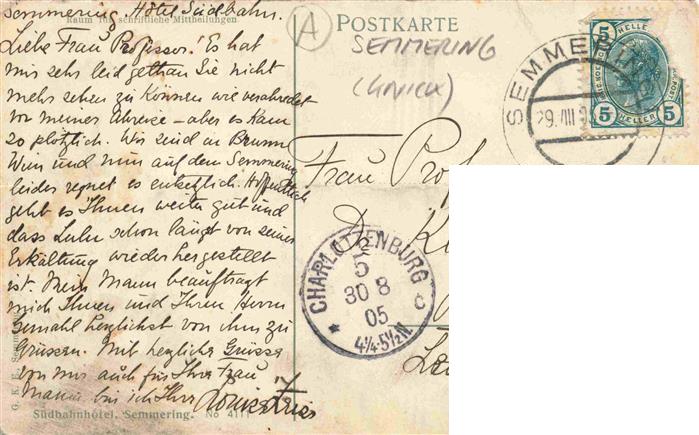 Semmering, Hôtel Südbahn.
Raum für schriftliche Mitteilungen
Liebe Frau Professor! Es hat
mir sehr leid gethan Sie nicht
mehr sehen zu können wie verabredet
vor meiner Abreise – aber es kam
zu plötzlich. Wir sind in Brünn
Wien und nun auf dem Semmering
leider regnet es entsetzlich. Hoffentlich
geht es Ihnen weiter gut und
dass Lulu schon längst von seiner
Erkältung wieder hergestellt
ist. Mein Mann beauftragt
mich Ihnen und Ihrem Herrn
Gemahl herzlichst von ihm zu
Grüssen. Mit herzliche Grüsse
von mir auch für Ihre Frau
Mama bin ich Ihre
Südbahnhôtel, Semmering. No 4111
POSTKARTE
A
SEMMERING
SEMMERING
29. VIII
5 HELLER 5
5 HELLER 5
Frau Prof
CHARLOTTENBURG
5
30 8
05
4¼-5½N.
c